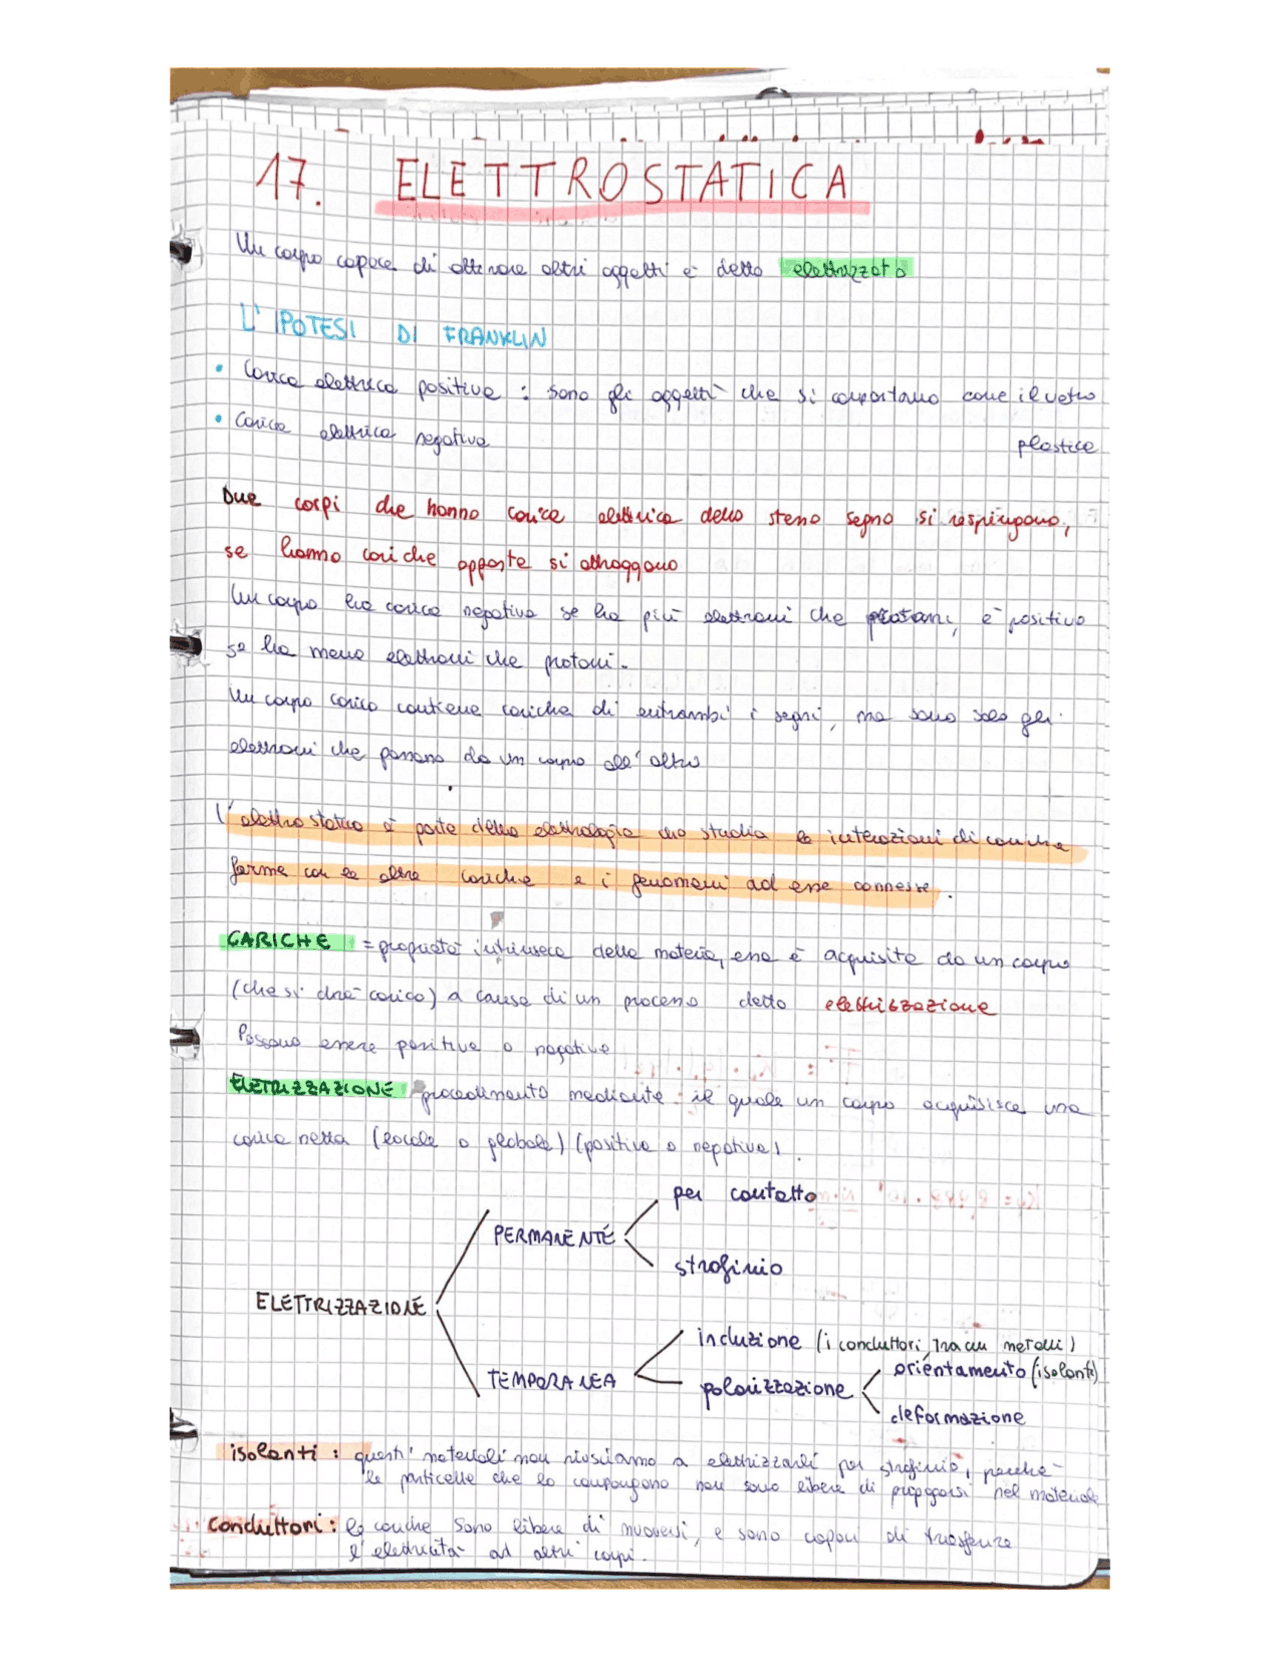 17. ELETTROSTATICA
Un corpo capace di attirare altri oggetti è detto elettrizzato
L'IPOTESI DI FRANKLIN
• Carica elettrica positiva : sono gli oggetti che si comportano come il vetro
• Carica elettrica negativa plastica
Due corpi che hanno carica elettrica dello stesso segno si respingono,
se hanno cariche opposte si attraggono
Un corpo ha carica negativa se ha più elettroni che protoni, è positivo
se ha meno elettroni che protoni.
Un corpo carico contiene cariche di entrambi i segni, ma sono solo gli
elettroni che passano da un corpo all'altro
L'elettrostatica è parte della elettrologia che studia le interazioni di cariche
ferme con le altre cariche e i fenomeni ad esse connesse.
CARICHE = proprietà intrinseca della materia, essa è acquisita da un corpo
(che si dirà carico) a causa di un processo detto elettrizzazione
Possono essere positive o negative
ELETRIZZAZIONE procedimento mediante il quale un corpo acquisisce una
carica netta (locale o globale) (positiva o negativa).
per contatto
PERMANENTE
strofinio
ELETTRIZZAZIONE
induzione (i conduttori, metalli)
orientamento (isolanti)
TEMPORANEA
polarizzazione
deformazione
isolanti : questi materiali non riusciamo a elettrizzarli per strofinio, perché
le particelle che lo compongono non sono libere di propagarsi nel materiale
conduttori : le cariche sono libere di muoversi, e sono capaci di trasferire
l'elettricità ad altri corpi.